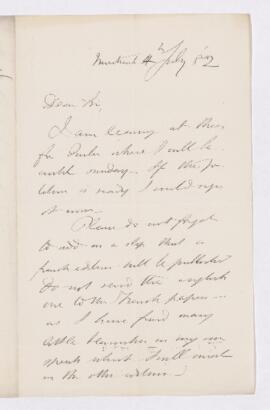 4th July
Dear Sir,
I am leaving at three
for where I will be
until sunday. If the
is ready I could sign
it now.
Please do not forget
to add on a slip that a
french edition will be published
do not send the english
one to the French papers —
as I have found many
little in my own
which I will
in the other edition —